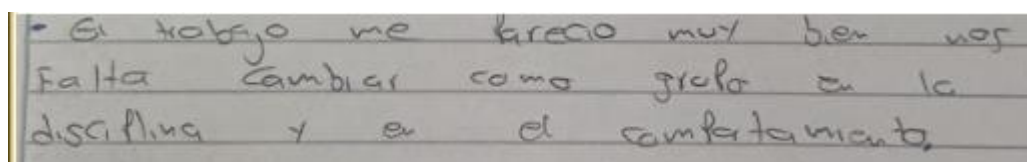 - El trabajo me parecio muy bien nos
Falta cambiar como grupo en la
disciplina y en el comportamiento.